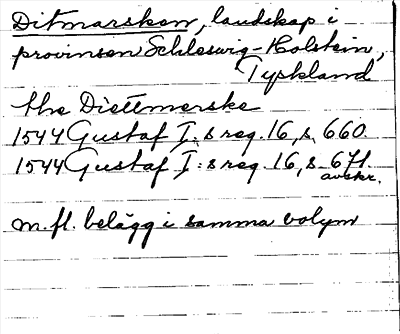 Ditmarsken, landskap i
provinsen Schleswig-Holstein,
Tyskland
the Dietmerske
1544 Gustaf I:s reg. 16, s. 660.
1544 Gustaf I:s reg. 16, s. 671.
avskr.
m.fl. belägg i samma volym